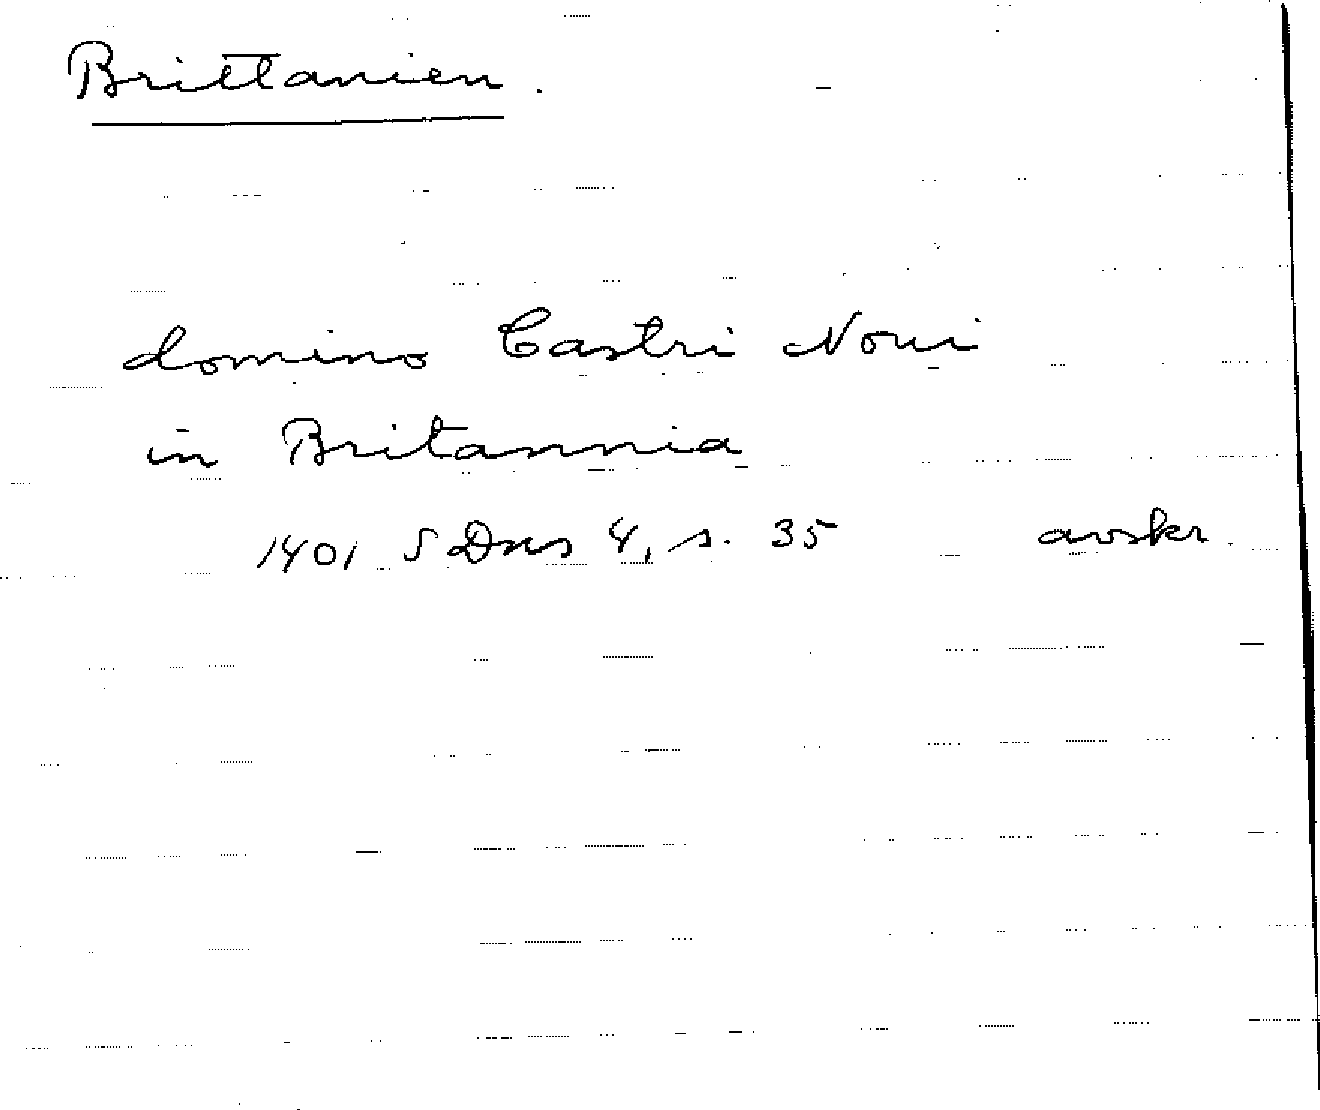 Brittanien.
domino Castri Noui
in Britannia
1401 SDns 4, s. 35 avskr.